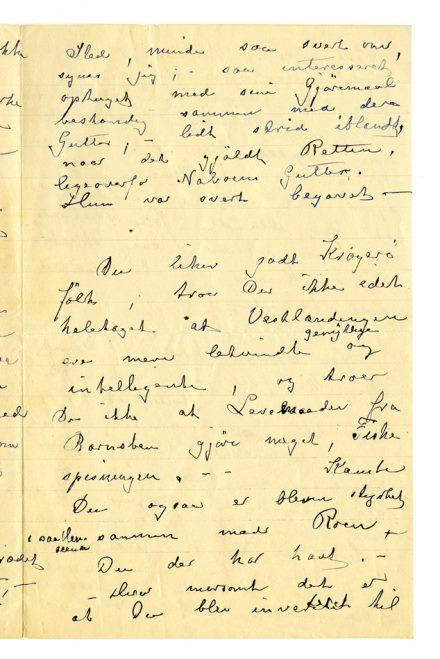 Sted, minde saa svært om,
synes jeg; - saa interesseret
optaget med sine Gjøremaal
bestandig sammen med dera
Gutter, - lidt strid iblandt,
naar det gjaldt Retten,
ligeoverfor Naboens Gutter.
Hun var svært begavet —
Du liker godt Krøyerö
folk, troer Du ikke idet
heletaget at Vestlændingen
gemytlige
ere mere letvindte og
intelligente, og troer
Du ikke at Levemaaden fra
Barnsben gjøre noget, Fiske
spisningen. - - Kanske
Du ogsaa er bleven styrket
sammen med Roen
Du der har havt. -
- Hvor morsomt det er
at Du blev inviteret til